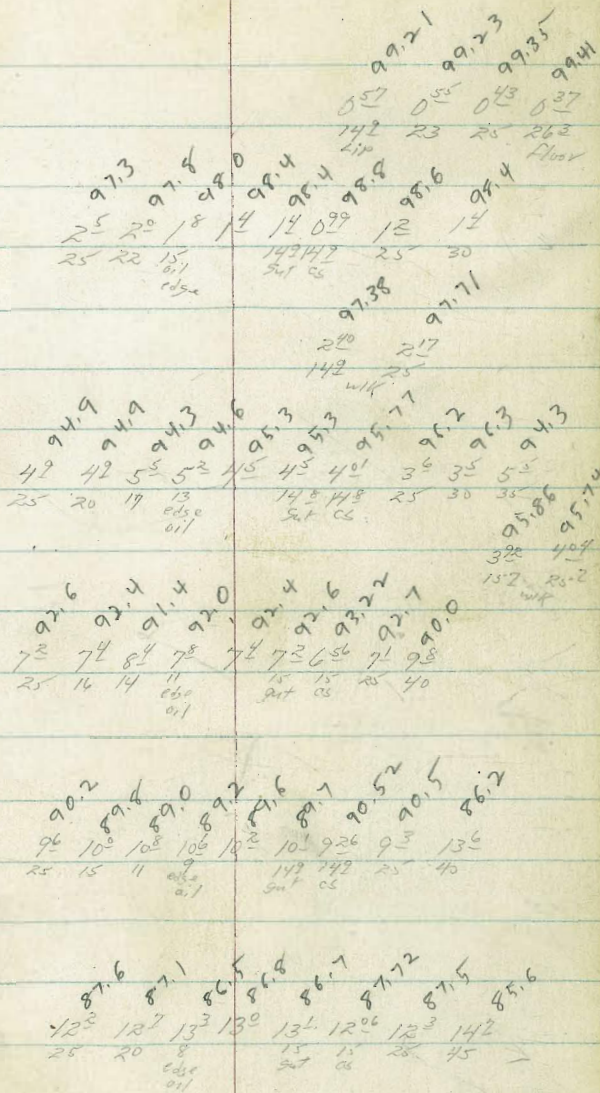 99.21 99.23 99.35 99.41
0 57 0 55 0 43 0 37
14 9 23 25 26 2
Lip floor
97.3 97.8 98.0 98.4 98.4 98.8 98.6 98.4
2 5 2 0 1 8 1 4 1 4 0 99 1 2 1 4
25 22 15 14 9 14 9 25 30
oil gut cs
edge
97.38 97.71
2 40 2 17
14 9 25
wlk
94.9 94.9 94.3 94.6 95.3 95.3 95.77 96.2 96.3 94.3
4 9 4 9 5 5 5 2 4 5 4 5 4 01 3 6 3 5 5 5
25 20 17 13 14 8 14 8 25 30 35
edge gut cs
oil
95.86 95.74
3 92 4 04
15 2 25.2
wlk
92.6 92.4 91.4 92.0 92.4 92.6 93.22 92.7 90.0
7 2 7 4 8 4 7 8 7 4 7 2 6 56 7 1 9 8
25 16 14 11 15 15 25 40
edge gut cs
oil
90.2 89.8 89.0 89.2 89.6 89.7 90.52 90.5 86.2
9 6 10 0 10 8 10 6 10 2 10 1 9 26 9 3 13 6
25 15 11 9 14 9 14 9 25 40
edge gut cs
oil
87.6 87.1 86.5 86.8 86.7 87.72 87.5 85.6
12 2 12 7 13 3 13 0 13 1 12 06 12 3 14 2
25 20 8 15 15 25 45
edge gut cs
oil